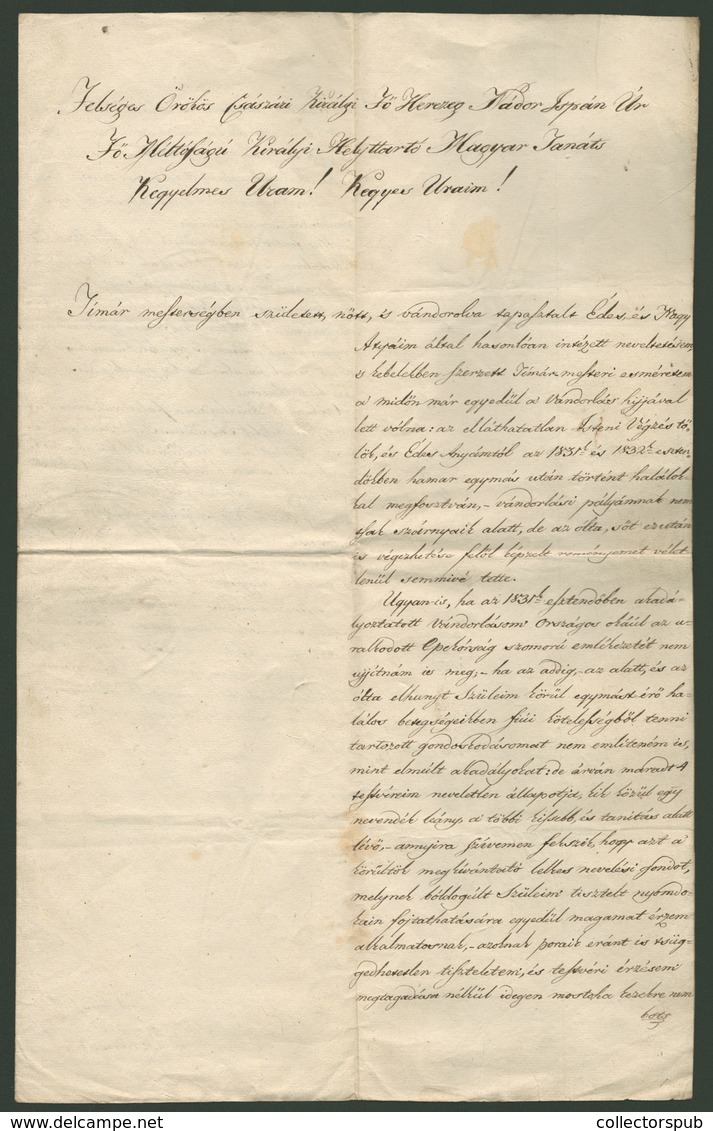 Felséges Örökös Császári Királyi Fő Herczeg Nádor Ispán Úr
Fő Méltóságú Királyi Helyttartó Magyar Tanáts
Kegyelmes Uram! Kegyes Uraim!
Tímár mesterségben született, nőtt, 's vándorolva tapasztalt Édes, és Nagy
Atyáim által hasonlóan intézett neveltetésem,
's ezekben szerzett Tímár mesteri esméretem
a midőn már egyedül a vándorlás híjjával
lett vólna: az elláthatatlan Isteni Végzés tő-
lök, és Édes Anyámtól az 1831k és 1832k eszten-
dőkben hamar egymás után történt halálok-
kal megfosztván, - vándorlási pályámnak nem
tsak szárnyaik alatt, de az ólta, sőt ezután
is végezhetése felől képzelt reményemet vélet-
lenül semmivé tette.
Ugyan is, ha az 1831k esztendőben akadá-
lyoztatott Vándorlásom Országos okáúl az u-
ralkodott Epekórság szomorú emlékezetét nem
ujjítnám is meg; - ha az addig, - az alatt, és az
ólta elhunyt Szüleim körűl egymást érő ha-
lálos betegségeikben fiúi kötelességből tenni
tartozott gondoskodásomat nem említeném is,
mint elmúlt akadályokat: de árván maradt 4
testvéreim neveletlen állapotja, kik közűl egy
nevendék leány, a többi kissebb, és tanítás alatt
lévő, - annyira szívemen fekszik, hogy azt a'
körűltök megkívántató lelkes nevelési gondot,
melynek bóldogúlt Szüleim tisztelt nyomdo-
kain fojtathatására egyedűl magamat érzem
alkalmatosnak, - azoknak poraik eránt is tsüg-
gedhetetlen tiszteletem, és testvéri érzésem
megtagadása nélkűl idegen mostoha kezekre nem
bots
collectorspub